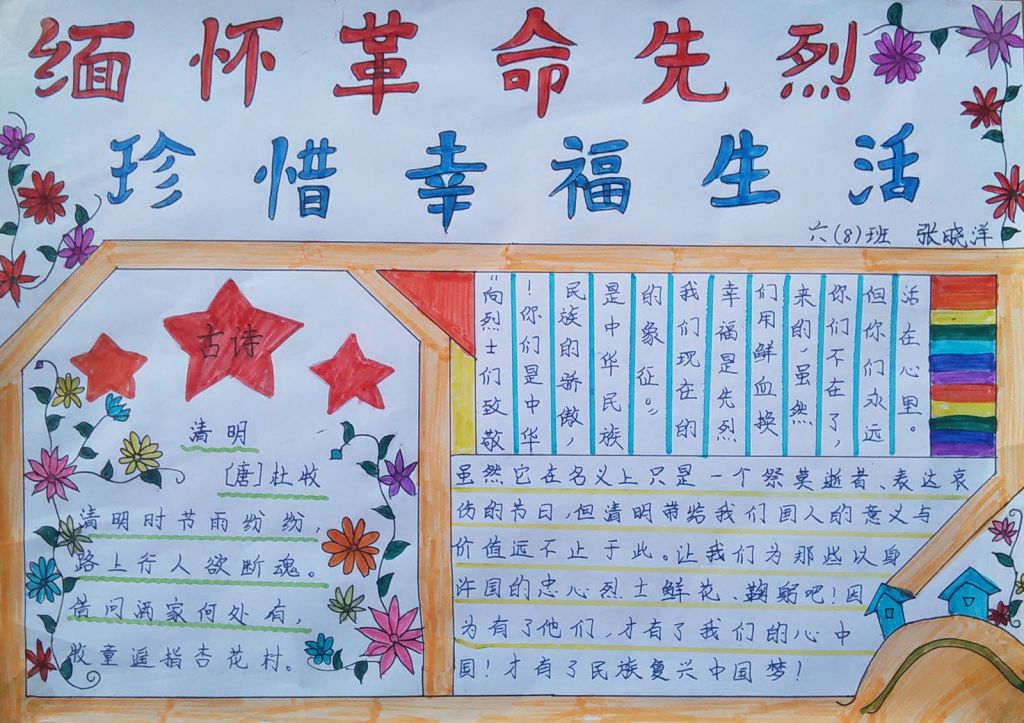 缅怀革命先烈
珍惜幸福生活
六(8)班 张晓洋
古诗
清明
[唐]杜牧
清明时节雨纷纷，
路上行人欲断魂。
借问酒家何处有，
牧童遥指杏花村。
“向烈士们致敬
！你们是中华
民族的骄傲，
是中华民族
的象征。”
我们现在的
幸福是先烈
们用鲜血换
来的，虽然
你们不在了，
但你们永远
活在心里。
虽然它在名义上只是一个祭莫逝者、表达哀
伤的节日，但清明带给我们国人的意义与
价值远不止于此。让我们为那些以身
许国的忠心烈士鲜花、鞠躬吧！因
为有了他们，才有了我们的心中
国！才有了民族复兴中国梦！